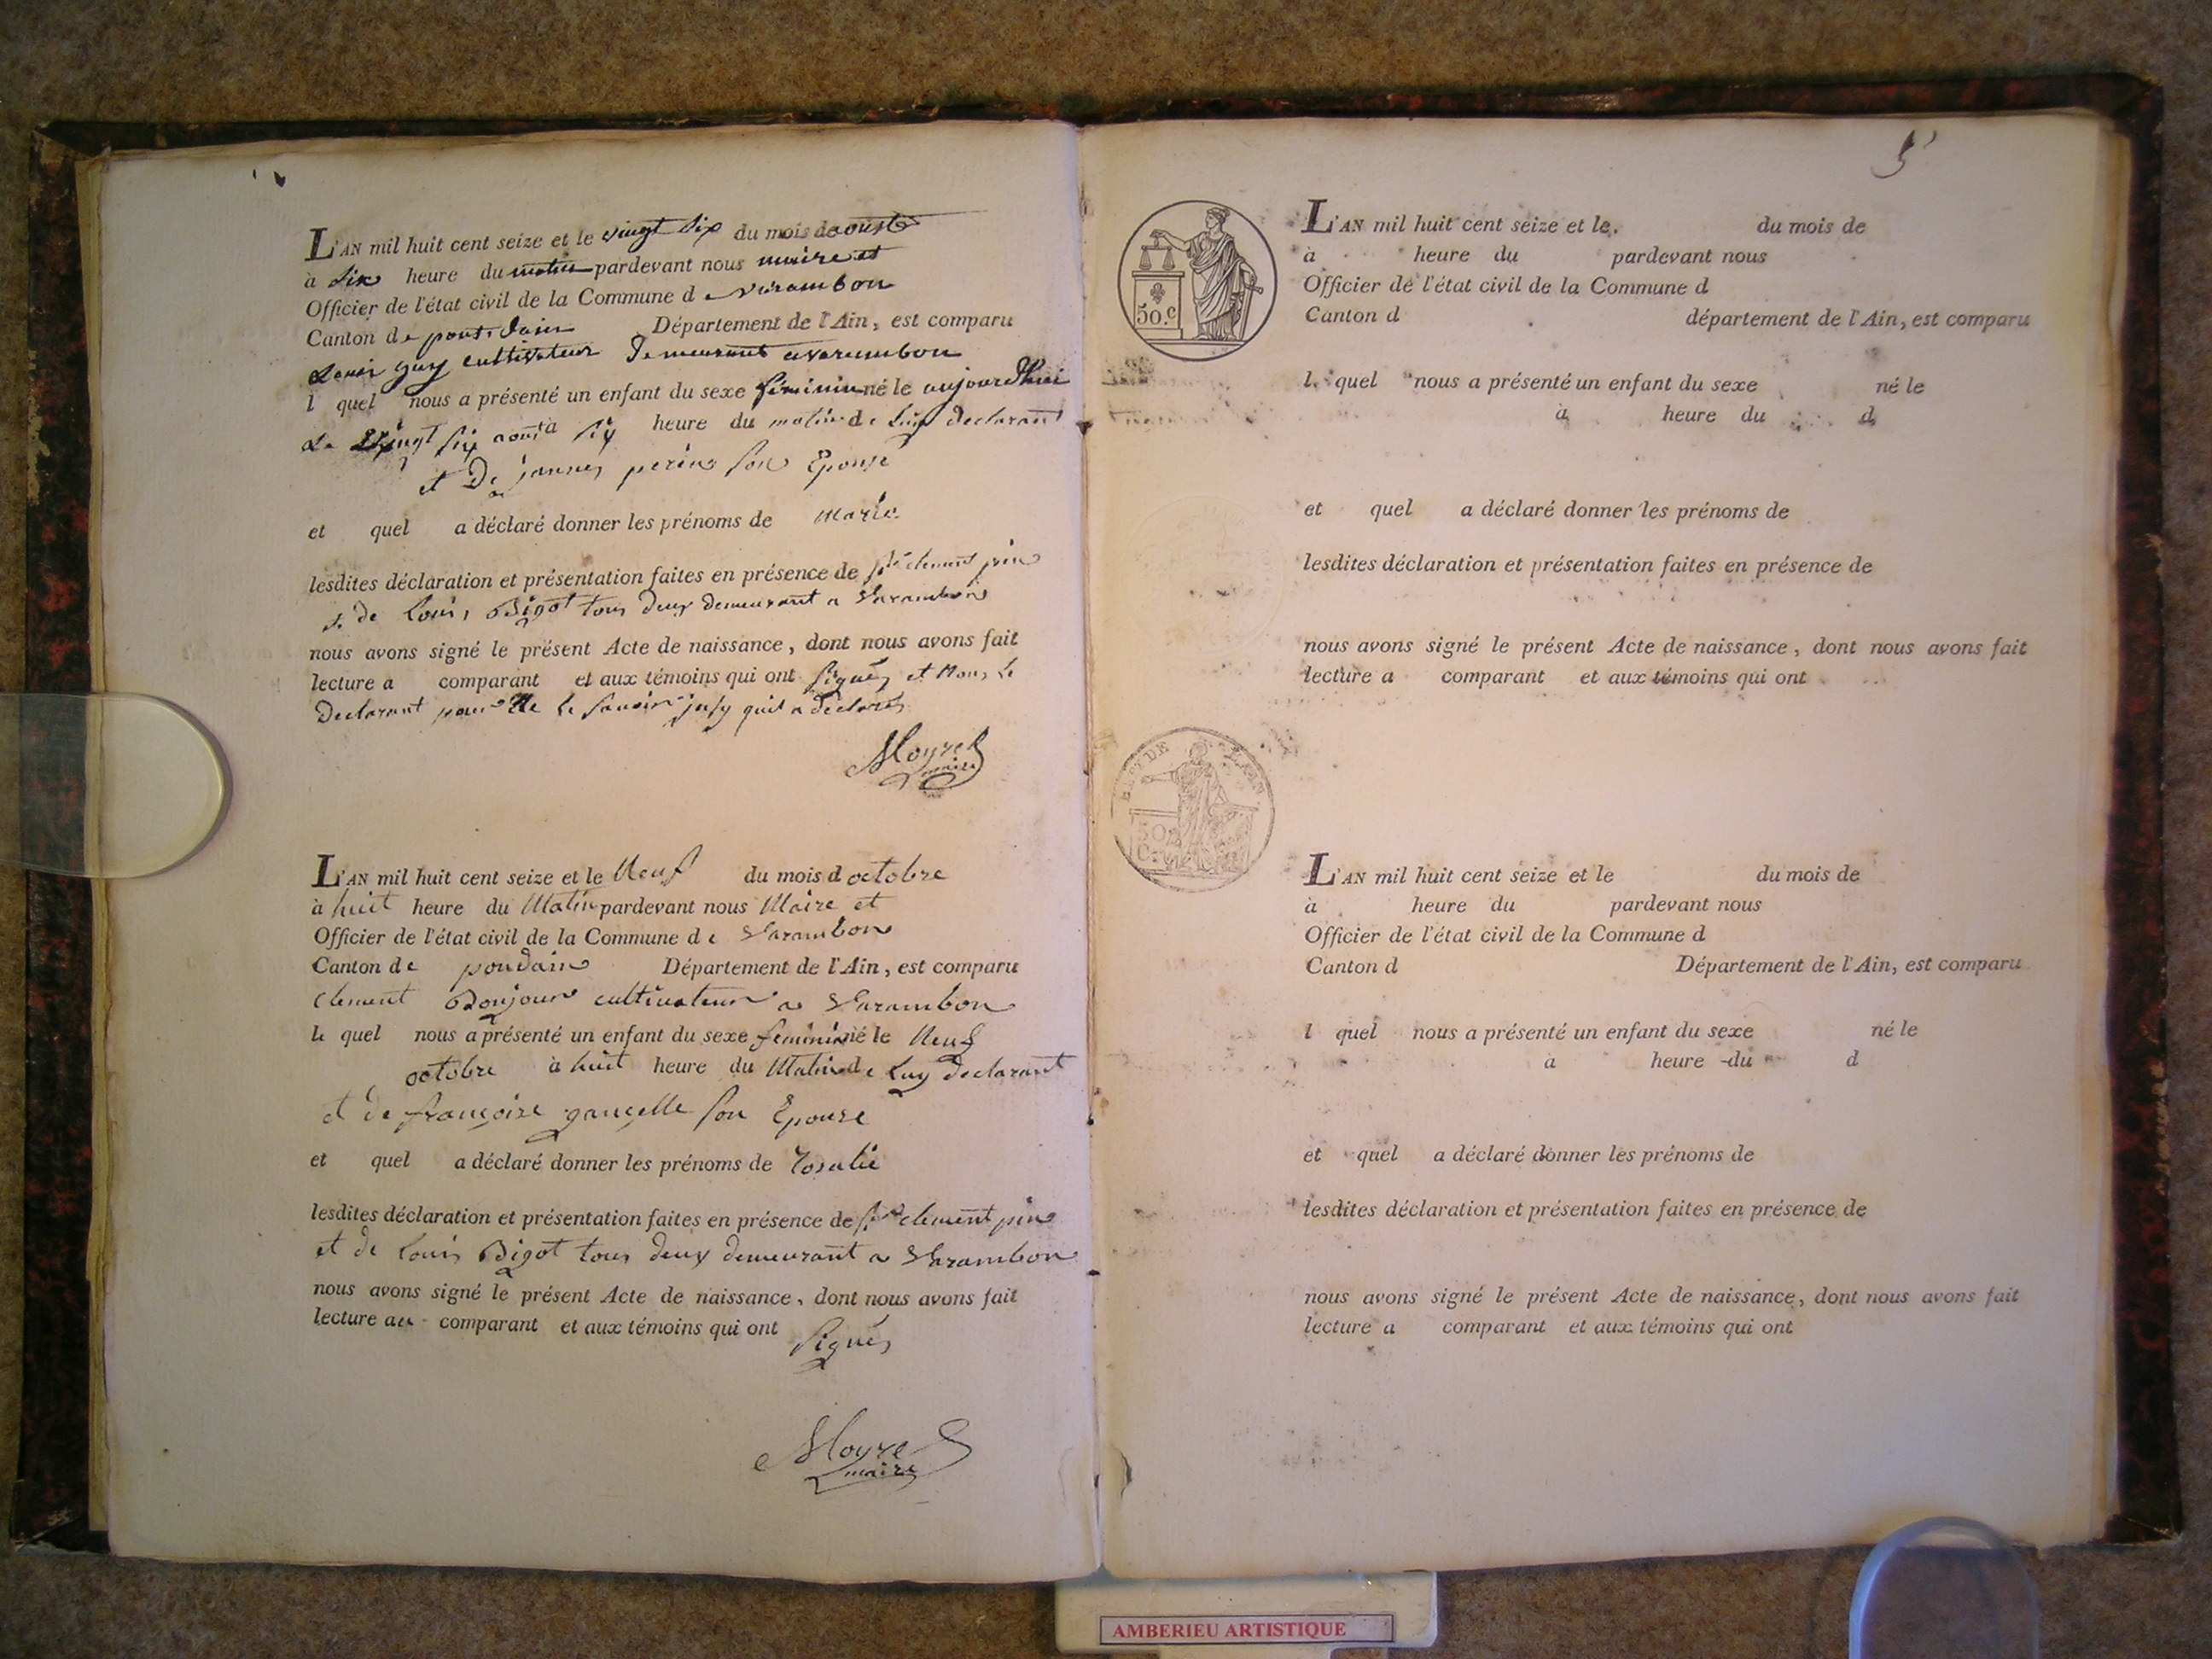 L'AN mil huit cent seize et le vingt six du mois de oust
à six heure du matin pardevant nous maire et
Officier de l'état civil de la Commune de varambon
Canton de pont dain Département de l'Ain, est comparu
Louis guy cultivateur demeurant a varambon
l quel nous a présenté un enfant du sexe féminin né le aujourdhui
Le vingt six aout à six heure du matin de luy declarant
et De jannes perin son Epouse
et quel a déclaré donner les prénoms de Marie
lesdites déclaration et présentation faites en présence de clement pin
et de Louis Bigot tous deux demeurant a Varambon
nous avons signé le présent Acte de naissance, dont nous avons fait
lecture a comparant et aux témoins qui ont signés et Non le
Declarant pour ne le savoir quil a declaré
Moyret
maire
L'AN mil huit cent seize et le Neuf du mois d octobre
à huit heure du Matin pardevant nous Maire et
Officier de l'état civil de la Commune de Varambon
Canton de pondain Département de l'Ain, est comparu
Clement Bonjour cultivateur a Varambon
le quel nous a présenté un enfant du sexe feminin né le Neuf
octobre à huit heure du Matin de Luy Declarant
et de françoise gancelle son Epouse
et quel a déclaré donner les prénoms de Rosalie
lesdites déclaration et présentation faites en présence de clement pin
et de Louis Bigot tous deux demeurant a Varambon
nous avons signé le présent Acte de naissance, dont nous avons fait
lecture au comparant et aux témoins qui ont signés
Moyret
maire
5
50.c
L'AN mil huit cent seize et le. du mois de
à heure du pardevant nous
Officier de l'état civil de la Commune d
Canton d département de l'Ain, est comparu
l quel nous a présenté un enfant du sexe né le
à heure du d
et quel a déclaré donner les prénoms de
lesdites déclaration et présentation faites en présence de
nous avons signé le présent Acte de naissance, dont nous avons fait
lecture a comparant et aux témoins qui ont
L'AN mil huit cent seize et le du mois de
à heure du pardevant nous
Officier de l'état civil de la Commune d
Canton d Département de l'Ain, est comparu
l quel nous a présenté un enfant du sexe né le
à heure du d
et quel a déclaré donner les prénoms de
lesdites déclaration et présentation faites en présence de
nous avons signé le présent Acte de naissance, dont nous avons fait
lecture a comparant et aux témoins qui ont
AMBERIEU ARTISTIQUE